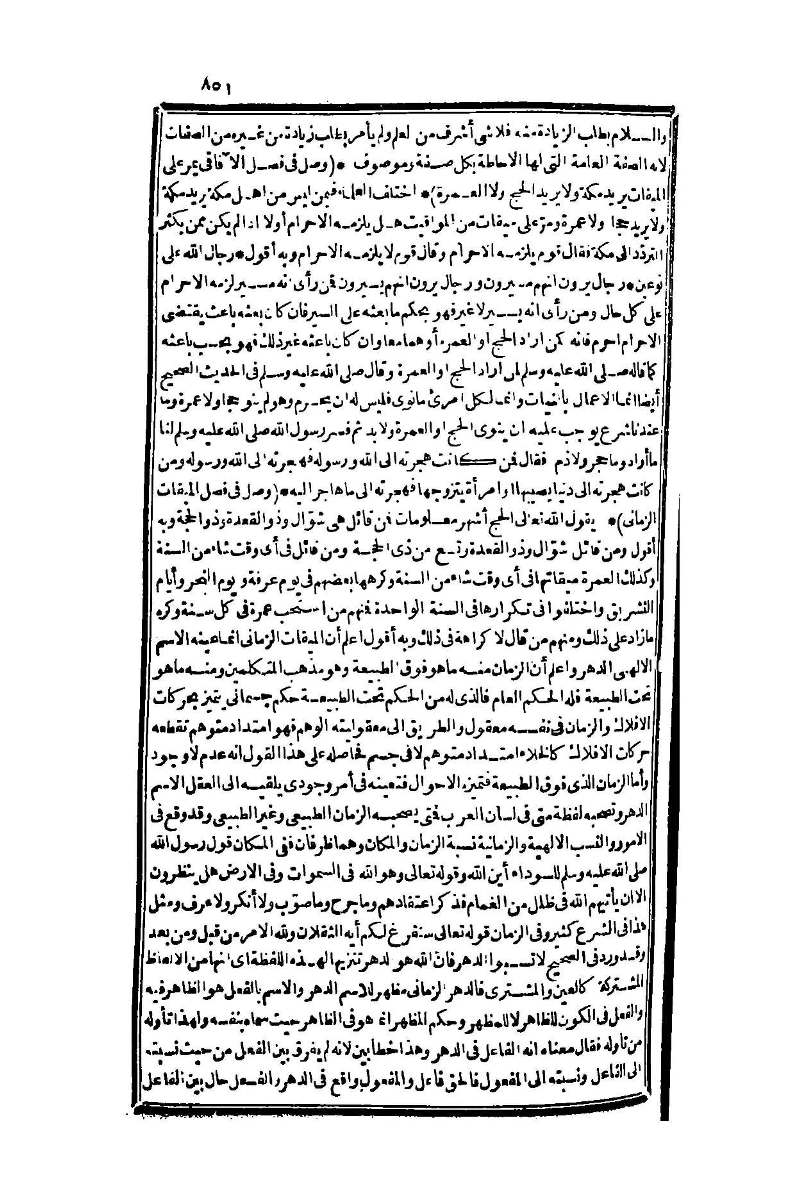 ٨٥١
والسلام بطلب الزيادة منه فلا شئ أشرف من العلم ولم يأمر بطلب زيادة من غيره من الصفات
لانه الصفة العامة التى لها الاحاطة بكل صفة وموصوف *(وصل فى فصل الآفاقى يمر على
الميقات يريد مكة ولا يريد الحج ولا العمرة)* اختلف العلماء فيمن ليس من اهل مكة يريد مكة
ولا يريد حجا ولا عمرة ومرّ على ميقات من المواقيت هل يلزمه الاحرام أولا اذا لم يكن ممن يكثر
التردّد الى مكة فقال قوم يلزمه الاحرام وقال قوم لا يلزمه الاحرام وبه أقول * رجال الله على
نوعين * رجال يرون انهم مسيرون ورجال يرون انهم يسيرون فمن رأى انه مسير لزمه الاحرام
على كل حال ومن رأى انه يسير لا غير فهو بحكم ما بعثه على السير فان كان بعثه باعث يقتضى
الاحرام احرم فانه كمن اراد الحج او العمرة أوهما معا وان كان باعثه غير ذلك فهو بحسب باعثه
كما قاله صلى الله عليه وسلم لمن اراد الحج او العمرة وقال صلى الله عليه وسلم فى الحديث الصحيح
أيضا انما الاعمال بالنيات وانما لكل امرئ ما نوى فليس له ان يحرم وهو لم ينو حجا ولا عمرة وما
عندنا شرع يوجب عليه ان ينوى الحج او العمرة ولا بد ثم فسر رسول الله صلى الله عليه وسلم لنا
ما أراد وما حجر ولا ذم فقال فمن كانت هجرته الى الله ورسوله فهجرته الى الله ورسوله ومن
كانت هجرته الى دنيا يصيبها او امرأة يتزوجها فهجرته الى ما هاجر اليه *(وصل فى فصل الميقات
الزمانى)* يقول الله تعالى الحج أشهر معلومات فمن قائل هى شوّال وذو القعدة وذو الحجة وبه
أقول ومن قائل شوّال وذو القعدة وتسع من ذى الحجة ومن قائل فى أى وقت شاء من السنة
وكذلك العمرة ميقاتها فى أى وقت شاء من السنة وكرهها بعضهم فى يوم عرفة ويوم النحر وأيام
التشريق واختلفوا فى تكرارها فى السنة الواحدة فمنهم من استحب عمرة فى كل سنة وكره
ما زاد على ذلك ومنهم من قال لا كراهة فى ذلك وبه أقول اعلم أن الميقات الزمانى انما عينه الاسم
الالهى الدهر واعلم أن الزمان منه ما هو فوق الطبيعة وهو مذهب المتكلمين ومنه ما هو
تحت الطبيعة فله الحكم العام فالذى له من الحكم تحت الطبيعة حكم جسمانى يتميز بحركات
الافلاك والزمان فى نفسه معقول والطريق الى معقوليته الوهم فهو امتداد متوهم تقطعه
حركات الافلاك كالخلاء امتداد متوهم لا فى جسم فحاصله على هذا القول انه عدم لا وجود
وأما الزمان الذى فوق الطبيعة فتميزه الاحوال فتعينه فى أمر وجودى يلقيه الى العقل الاسم
الدهر وتصحبه لفظة متى فى لسان العرب فمتى يصحبه الزمان الطبيعى وغير الطبيعى وقد وقع فى
الامور والنسب الالهية والزمانية نسبة الزمان والمكان وهما ظرفان ففى المكان قول رسول الله
صلى الله عليه وسلم للسوداء أين الله وقوله تعالى وهو الله فى السموات وفى الارض هل ينظرون
الا ان يأتيهم الله فى ظلل من الغمام فذكر اعتقادهم وما جرح وما صوّب ولا أنكر ولا عرف ومثل
هذا فى الشرع كثير وفى الزمان قوله تعالى سنفرغ لكم أيه الثقلان ولله الامر من قبل ومن بعد
وقد ورد فى الصحيح لا تسبوا الدهر فان الله هو الدهر تنزيه لهذه اللفظة اى انها من الالفاظ
المشتركة كالعين والمشترى فالدهر الزمانى مظهر للاسم الدهر والاسم بالفعل هو الظاهر فيه
والفعل فى الكون للظاهر لا للمظهر وحكم المظهر انما هو فى الظاهر حيث سماه بنفسه ولهذا تأوله
من تأوله فقال معناه انه الفاعل فى الدهر وهذا خطأ بين لانه لم يفرق بين الفعل من حيث نسبته
الى الفاعل ونسبته الى المفعول فالحق فاعل والمفعول واقع فى الدهر والفعل حال بين الفاعل